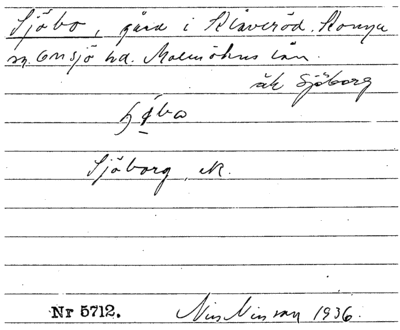 Sjöbo, gård i Klåveröd, Konga
sn. Onsjö hd. Malmöhus län.
äk Sjöborg
Sjöborg, ek.
Nr 5712. Nils Nilsson 1936.